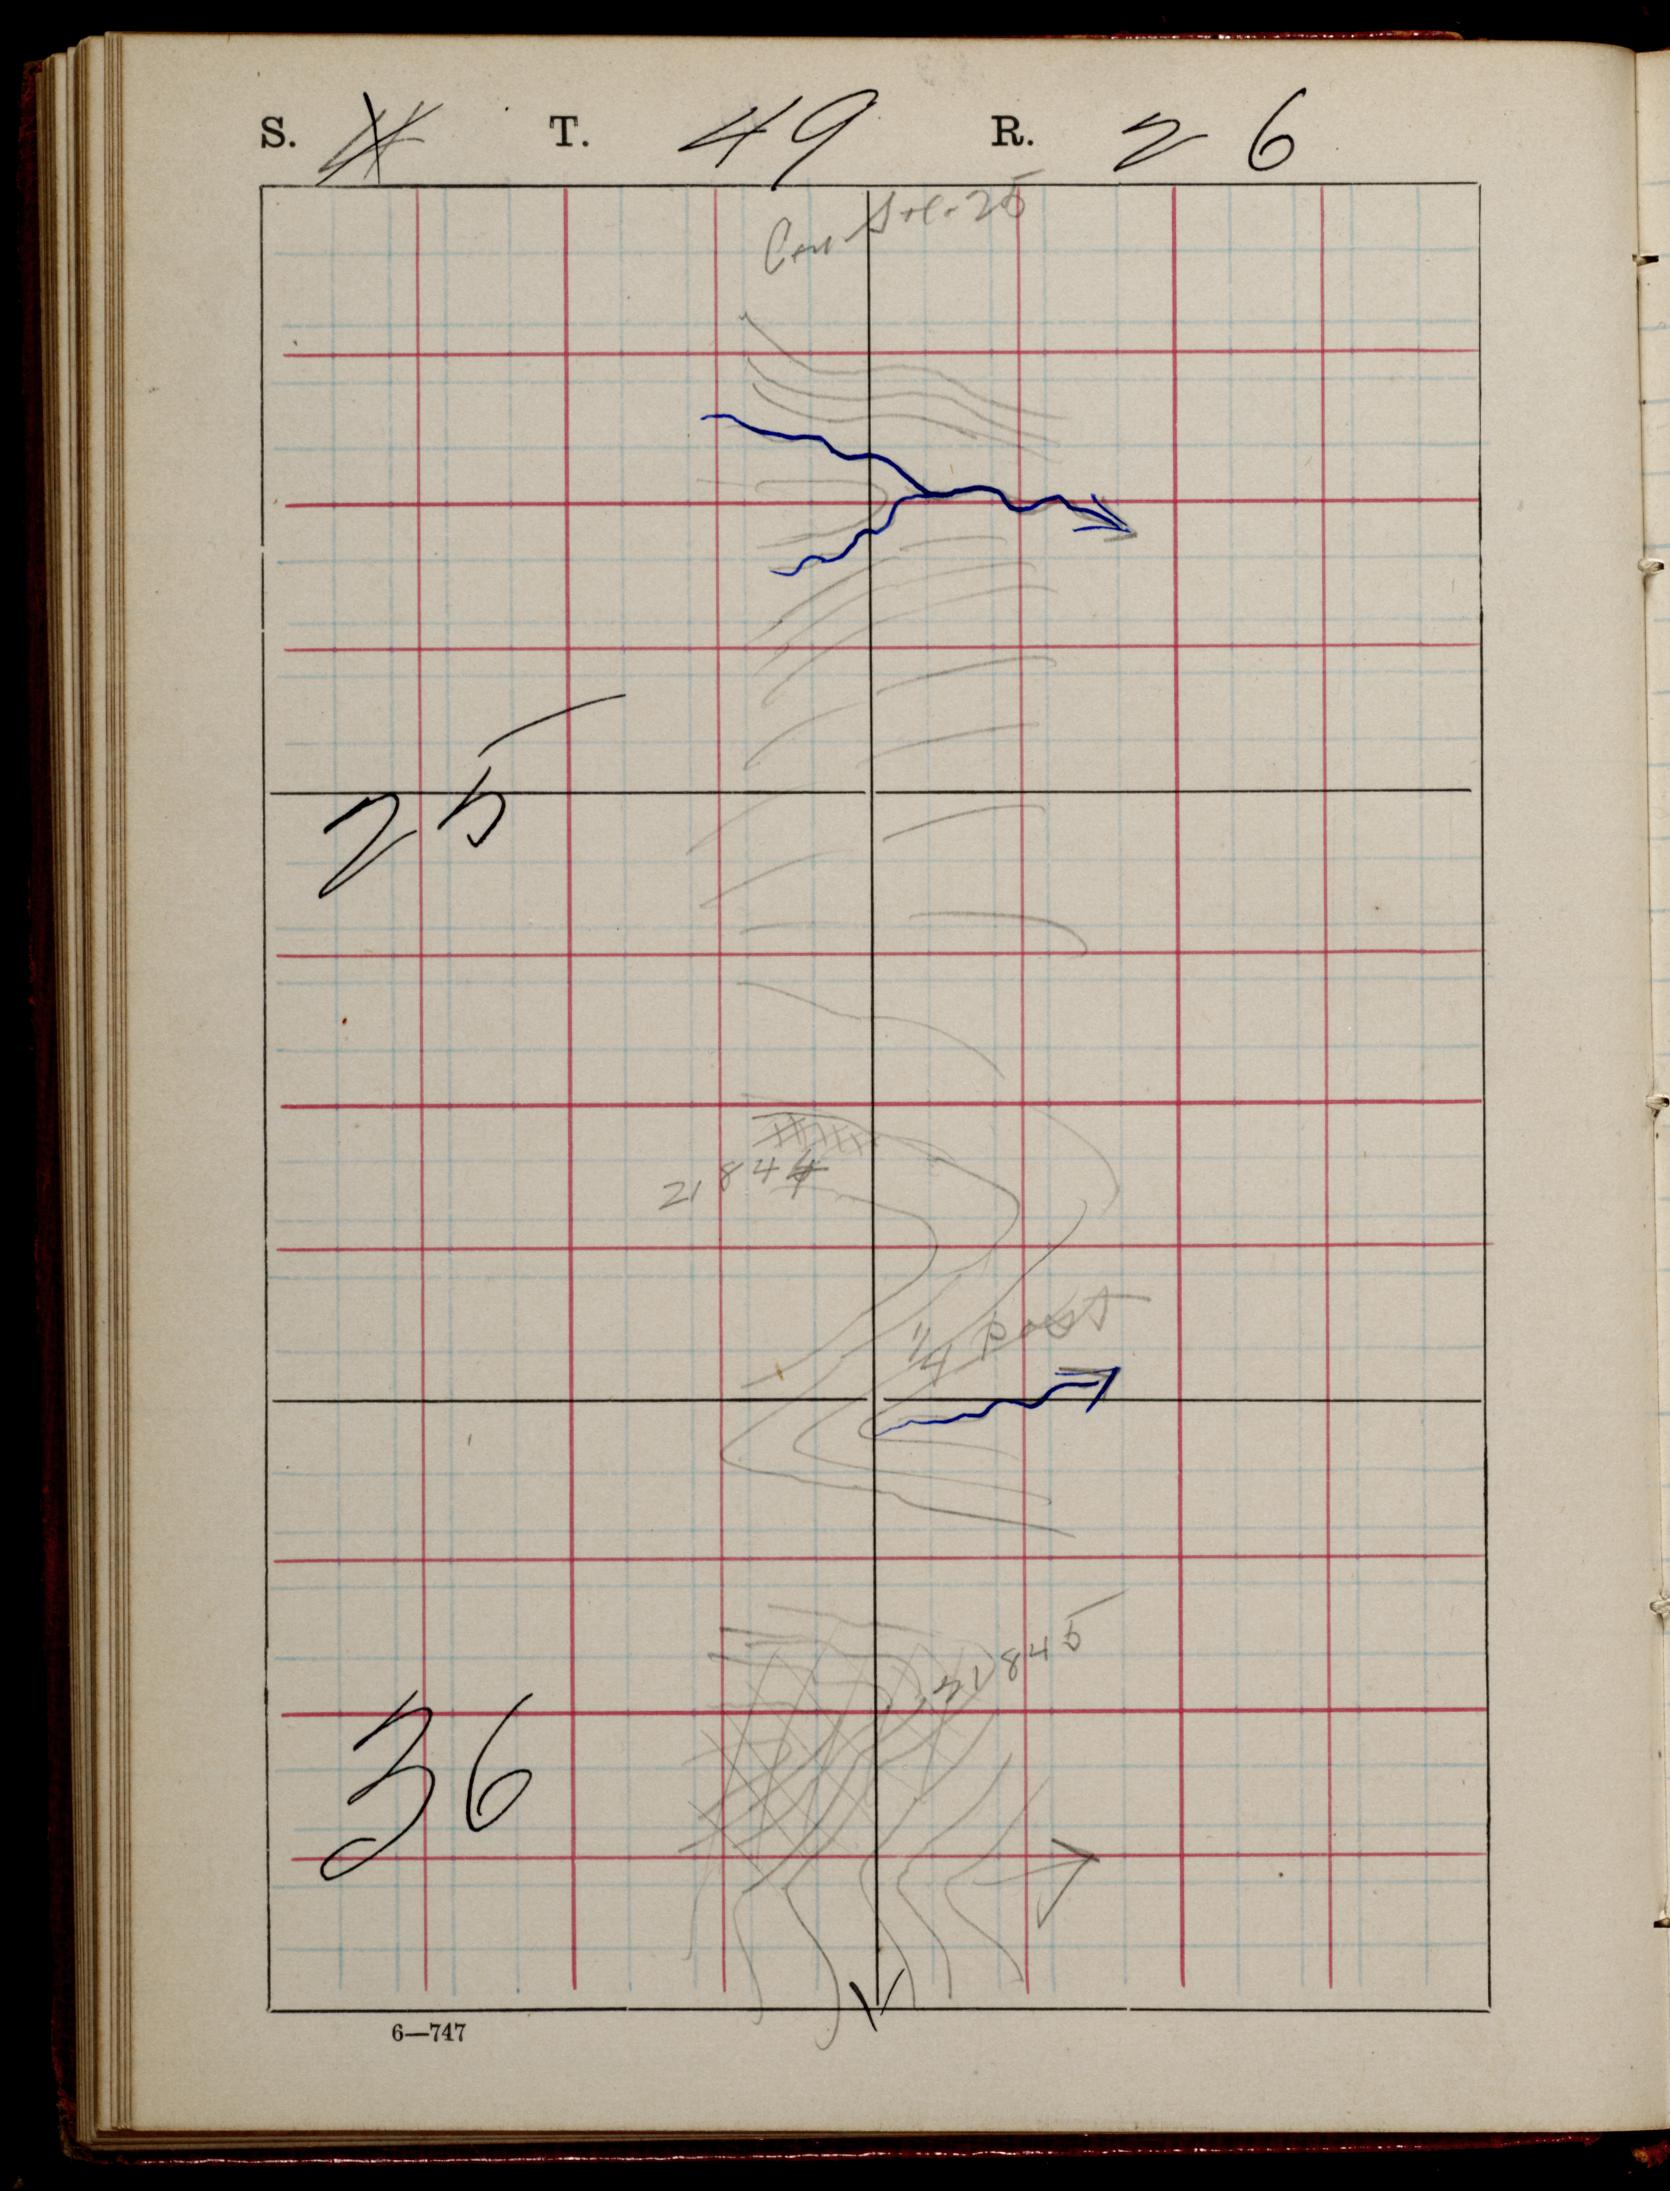 S. T. 49 R. 26
Cor Sec. 25
25
21844
1/4 Post
21845
36
6—747